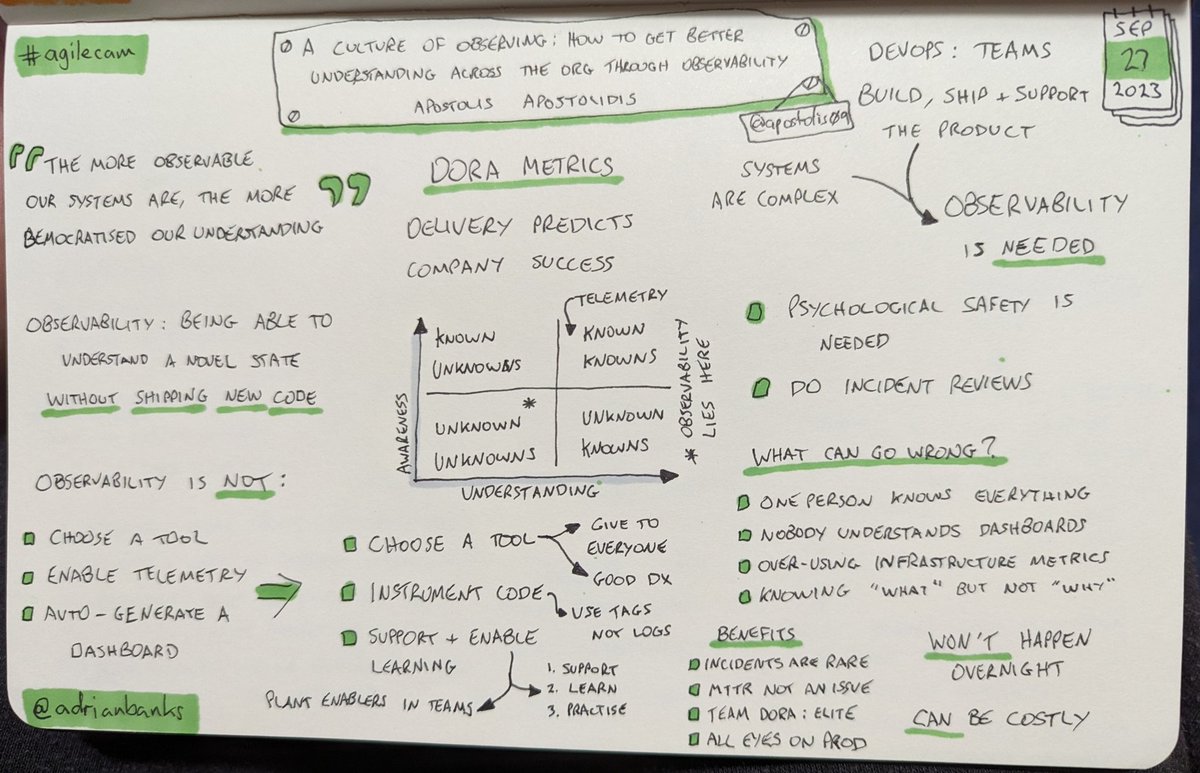 #agilecam
A CULTURE OF OBSERVING: HOW TO GET BETTER
UNDERSTANDING ACROSS THE ORG THROUGH OBSERVABILITY
APOSTOLIS APOSTOLIDIS
@apostolis09
SEP
27
2023
DEVOPS: TEAMS
BUILD, SHIP + SUPPORT
THE PRODUCT
SYSTEMS
ARE COMPLEX
OBSERVABILITY
IS NEEDED
"THE MORE OBSERVABLE
OUR SYSTEMS ARE, THE MORE
DEMOCRATISED OUR UNDERSTANDING"
DORA METRICS
DELIVERY PREDICTS
COMPANY SUCCESS
OBSERVABILITY: BEING ABLE TO
UNDERSTAND A NOVEL STATE
WITHOUT SHIPPING NEW CODE
TELEMETRY
KNOWN
UNKNOWNS
KNOWN
KNOWNS
*
UNKNOWN
UNKNOWNS
UNKNOWN
KNOWNS
AWARENESS
UNDERSTANDING
* OBSERVABILITY
LIES HERE
PSYCHOLOGICAL SAFETY IS
NEEDED
DO INCIDENT REVIEWS
OBSERVABILITY IS NOT:
CHOOSE A TOOL
ENABLE TELEMETRY
AUTO-GENERATE A
DASHBOARD
CHOOSE A TOOL
GIVE TO
EVERYONE
GOOD DX
INSTRUMENT CODE
USE TAGS
NOT LOGS
SUPPORT + ENABLE
LEARNING
PLANT ENABLERS IN TEAMS
1. SUPPORT
2. LEARN
3. PRACTISE
WHAT CAN GO WRONG?
ONE PERSON KNOWS EVERYTHING
NOBODY UNDERSTANDS DASHBOARDS
OVER-USING INFRASTRUCTURE METRICS
KNOWING "WHAT" BUT NOT "WHY"
BENEFITS
INCIDENTS ARE RARE
MTTR NOT AN ISSUE
TEAM DORA: ELITE
ALL EYES ON PROD
WON'T HAPPEN
OVERNIGHT
CAN BE COSTLY
@adrianbanks